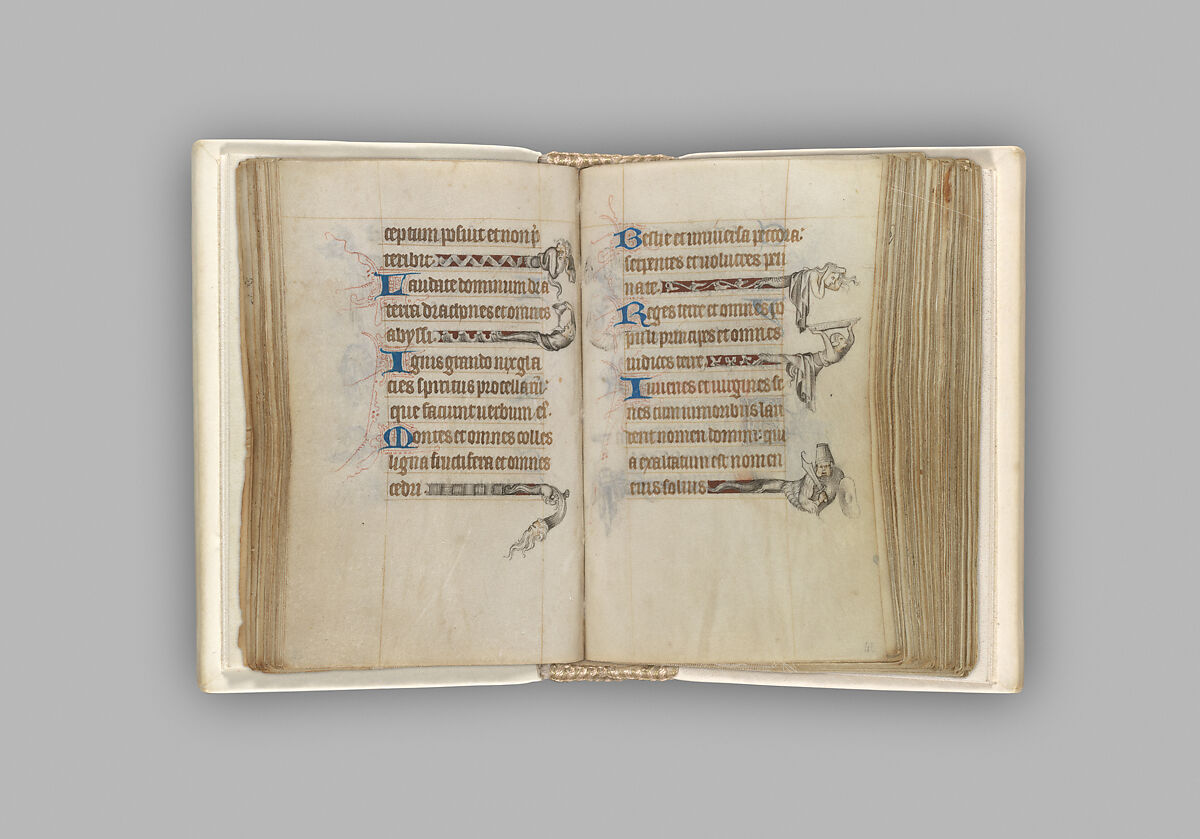 ceptum posuit et non p̄
teribit.
Laudate dominum de
terra dracones et omnes
abyssi.
Ignis grando nix gla
cies spiritus procellarū:
que faciunt uerbum eī.
Montes et omnes colles
ligna fructifera et omnes
cedri.
Bestie et uniuersa peccora:
serpentes et uolucres pen
nate.
Reges terre et omnes po
puli principes et omnes
iudices terre.
Iuuenes et uirgines se
nes cum iunioribus lau
dent nomen domini: qui
a exaltatum est nomen
eius solius